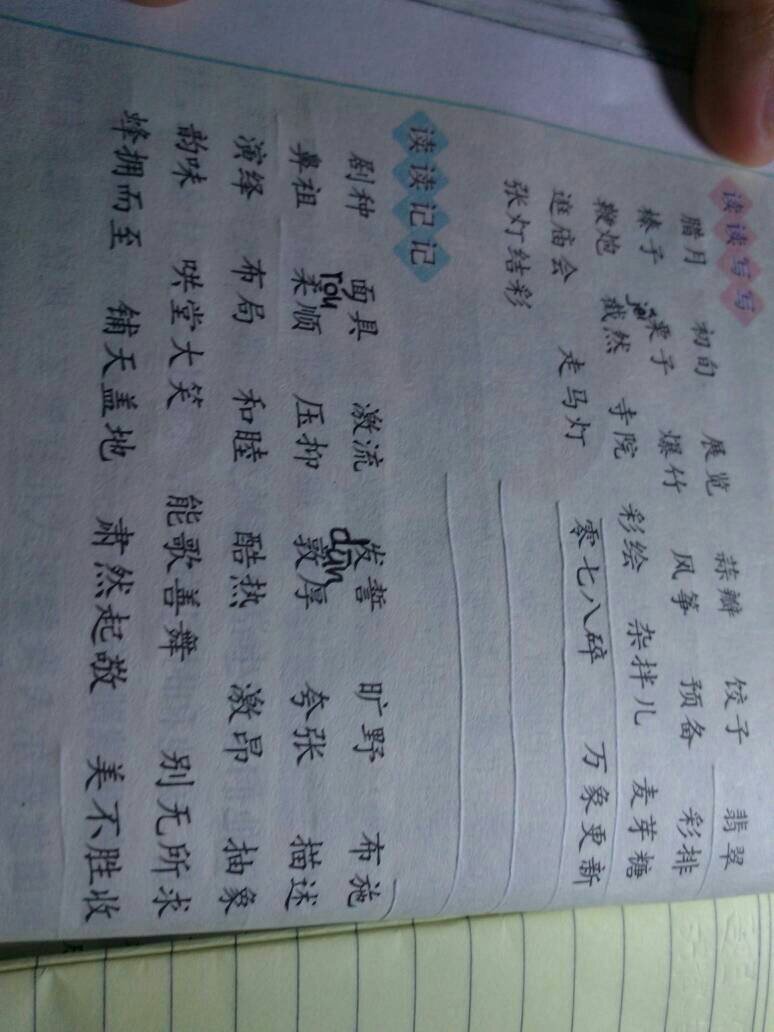 读读写写
腊月 初旬 展览 蒜瓣 饺子 翡翠
榛子 栗子 爆竹 风筝 预备 彩排
鞭炮 截然 寺院 彩绘 杂拌儿 麦芽糖
逛庙会 走马灯 零七八碎 万象更新
张灯结彩
读读记记
剧种 面具 激流 发誓 旷野 布施
róu dūn
鼻祖 柔顺 压抑 敦厚 夸张 描述
演绎 布局 和睦 酷热 激昂 抽象
韵味 哄堂大笑 能歌善舞 别无所求
蜂拥而至 铺天盖地 肃然起敬 美不胜收